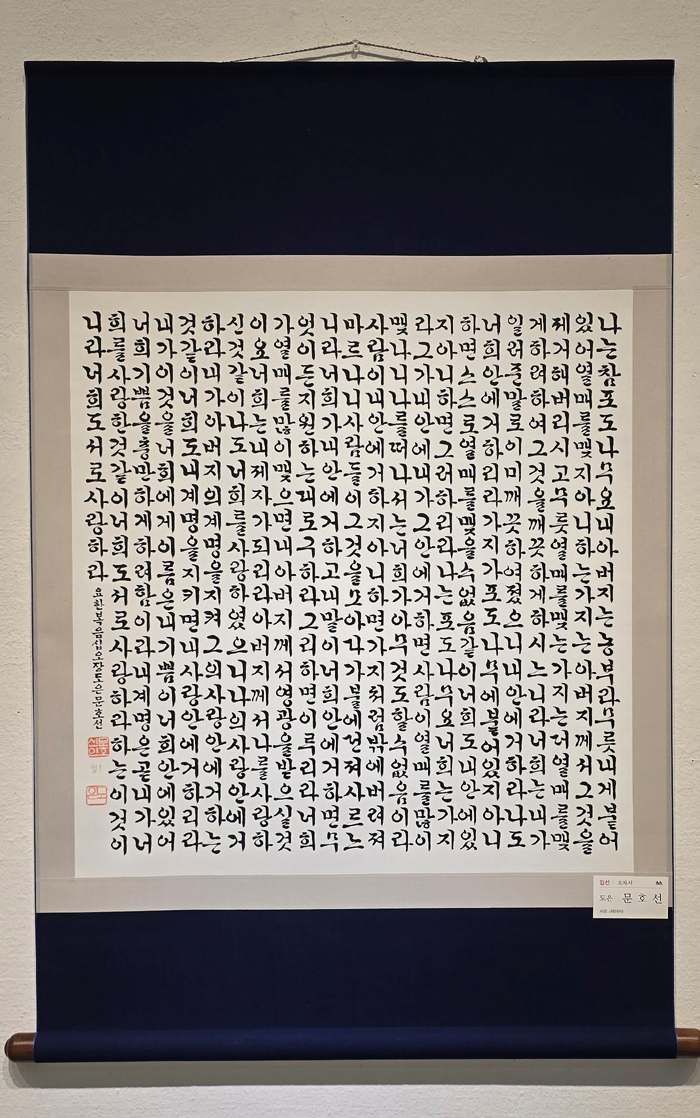 나는참포도나무요내아버지는농부라무릇내게붙어
있어열매를맺지아니하는가지는아버지께서그것을
제거해버리시고무릇열매를맺는가지는더열매를맺
게하려하여그것을깨끗하게하시느니라너희는내가
일러준말로이미깨끗하여졌으니내안에거하라나도
너희안에거하리라가지가포도나무에붙어있지아니
하면스스로열매를맺을수없음같이너희도내안에있
지아니하면그러하리라나는포도나무요너희는가지
라그가내안에내가그안에거하면사람이열매를많이
맺나니나를떠나서는너희가아무것도할수없음이라
사람이내안에거하지아니하면가지처럼밖에버려져
마르나니사람들이그것을모아다가불에던져사르느
니라너희가내안에거하고내말이너희안에거하면무
엇이든지원하는대로구하라그리하면이루리라너희
가열매를많이맺으면내아버지께서영광을받으실것
이요너희는내제자가되리라아버지께서나를사랑하
신것같이나도너희를사랑하였으니나의사랑안에거
하라내가아버지의계명을지켜그의사랑안에거하는
것같이너희도내계명을지키면내사랑안에거하리라
내가이것을너희에게이름은내기쁨이너희안에있어
너희기쁨을충만하게하려함이라내계명은곧내가너
희를사랑한것같이너희도서로사랑하라하는이것이
니라너희도서로사랑하라 요한복음십오장도은문호선
입선 : 소자서
도은 문호선